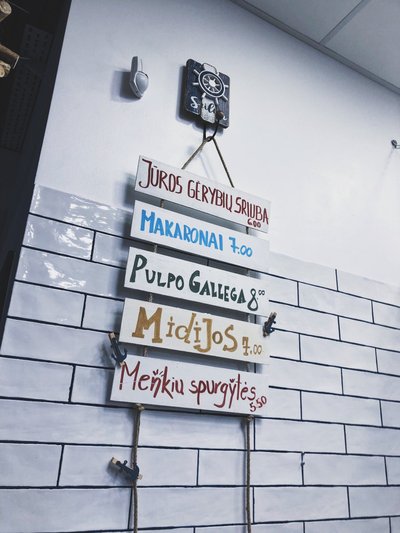 JŪROS GĖRYBIŲ SRIUBA
6.00
MAKARONAI 7.00
PULPO GALLEGA 8.00
Midijos 7.00
Meņkiu spurgytės
5.50